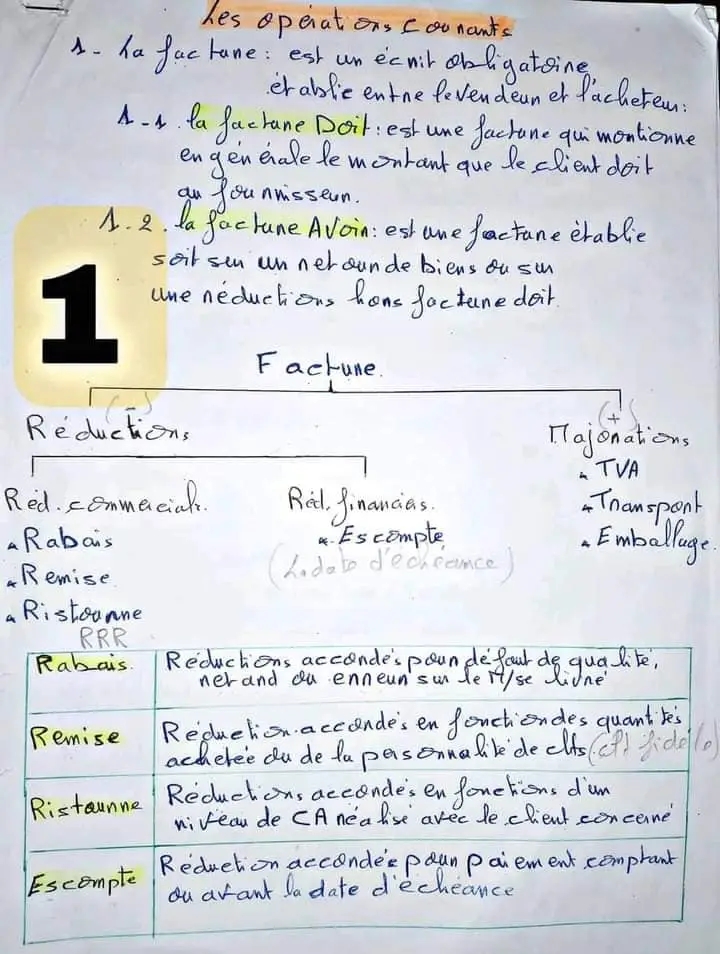 Les opérations Courrants
1- La facture : est un écrit obligatoire
établie entre le vendeur et l'acheteur :
1-1. la facture Doit : est une facture qui montionne
en générale le montant que le client doit
au fournisseur.
1.2. la facture Avoir : est une facture établie
soit sur un retour de biens ou sur
une réductions hors facture doit.
1
Facture.
(-) (+)
Réductions Majorations
Réd. commercials. Réd. financiers. TVA
Rabais Escompte Transport
Remise (date d'échéance) Emballage.
Ristourne
RRR
Rabais. Réductions accordés pour défaut de qualité,
retard ou erreur sur le M/se livré
Remise Réduction accordés en fonction des quantités
achetée ou de la personnalité de clts (clt fidèle)
Ristourne Réductions accordés en fonctions d'un
niveau de CA réalisé avec le client concerné
Escompte Réduction accordée pour paiement comptant
ou avant la date d'échéance